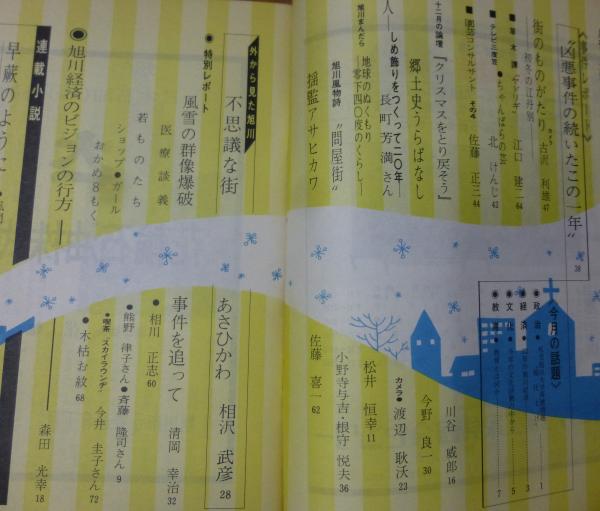 “凶悪事件の続いたこの一年” 38
街のものがたり カメラ 古沢 利雄 47
初冬の江丹別
草木譚 ヤドリギ 江口 建二 64
テレビ三度笠
ちゃんばらの芸 北 けんじ 42
創芸コンサルサント その4 佐藤 正三 44
十二月の論壇 『クリスマスをとり戻そう』 川谷 威郎 16
郷土史うらばなし 今野 良一 30
人 ―しめ飾りをつくって二〇年―
長町芳満さん カメラ● 渡辺 耿沃 23
旭川まんだら
―地球のぬくもり
零下四〇度のくらし― 松井 恒幸 11
旭川風物詩 “問屋街” 小野寺与吉・根守 悦夫 36
揺籃アサヒカワ 佐藤 喜一 62
＜今月の話題＞
●政治 1
●経済 3
●文化 5
●教育 7
外から見た旭川
不思議な街 あさひかわ 相沢 武彦 28
●特別レポート
風雪の群像爆破 事件を追って 清岡 幸治 32
医療談義 ●相川 正志 60
若ものたち ●熊野 律子さん●斉藤 隆司さん 9
ショップ●ガール ●喫茶“スカイラウンヂ” 今井 圭子さん 72
おかめ8もく ●木枯お紋 68
●旭川経済のビジョンの行方 森田 光幸 18
連載小説
早蕨のように